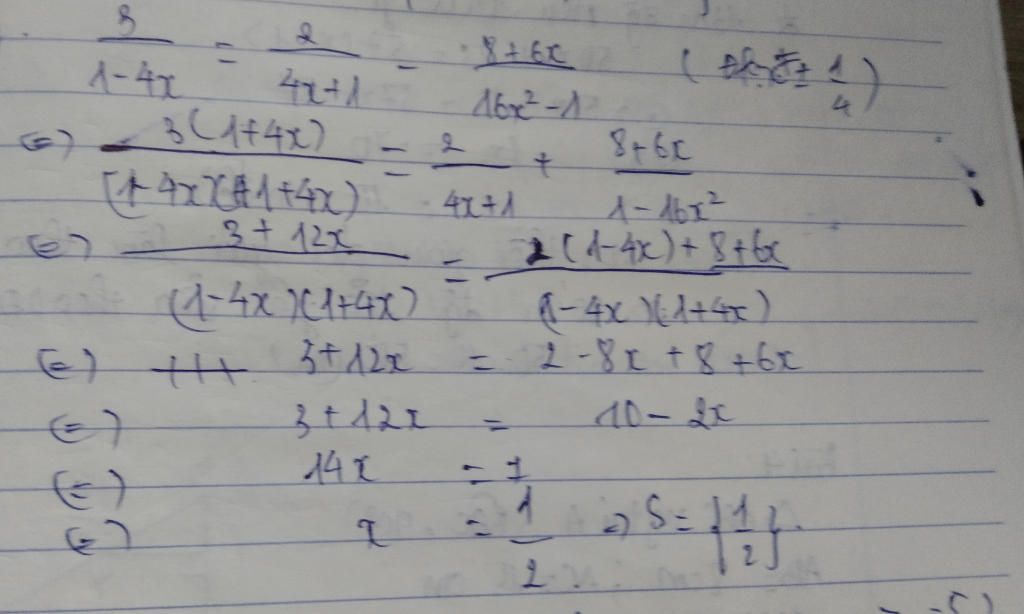 3/(1-4x) = 2/(4x+1) - (8+6x)/(16x²-1) ( x ≠ ± 1/4 )
⇔ 3(1+4x)/((1-4x)(1+4x)) = 2/(4x+1) + (8+6x)/(1-16x²)
⇔ (3+12x)/((1-4x)(1+4x)) = (2(1-4x)+8+6x)/((1-4x)(1+4x))
⇔ 3+12x = 2-8x+8+6x
⇔ 3+12x = 10-2x
⇔ 14x = 7
⇔ x = 1/2 ⇒ S = {1/2}.